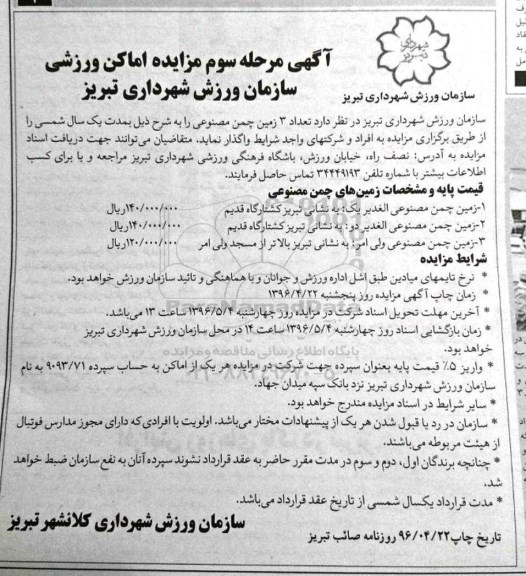 شهرداری
تبریز
سازمان ورزش شهرداری تبریز
آگهی مرحله سوم مزایده اماکن ورزشی
سازمان ورزش شهرداری تبریز
سازمان ورزش شهرداری تبریز در نظر دارد تعداد ۳ زمین چمن مصنوعی را به شرح ذیل بمدت یک سال شمسی را
از طریق برگزاری مزایده به افراد و شرکتهای واجد شرایط واگذار نماید، متقاضیان می‌توانند جهت دریافت اسناد
مزایده به آدرس: نصف راه، خیابان ورزش، باشگاه فرهنگی ورزشی شهرداری تبریز مراجعه و یا برای کسب
اطلاعات بیشتر با شماره تلفن ۳۴۴۴۹۱۹۳ تماس حاصل فرمایند.
قیمت پایه و مشخصات زمین‌های چمن مصنوعی
۱-زمین چمن مصنوعی الغدیر یک: به نشانی تبریز کشتارگاه قدیم ۱۴۰/۰۰۰/۰۰۰ریال
۲-زمین چمن مصنوعی الغدیر دو: به نشانی تبریز کشتارگاه قدیم ۱۴۰/۰۰۰/۰۰۰ریال
۳-زمین چمن مصنوعی ولی امر: به نشانی تبریز بالاتر از مسجد ولی امر ۱۲۰/۰۰۰/۰۰۰ریال
شرایط مزایده
* نرخ تایمهای میادین طبق اشل اداره ورزش و جوانان و با هماهنگی و تائید سازمان ورزش خواهد بود.
* زمان چاپ آگهی مزایده روز پنجشنبه ۱۳۹۶/۴/۲۲
* آخرین مهلت تحویل اسناد شرکت در مزایده روز چهارشنبه ۱۳۹۶/۵/۴ ساعت ۱۳ می‌باشد.
* زمان بازگشایی اسناد روز چهارشنبه ۱۳۹۶/۵/۴ ساعت ۱۴ در محل سازمان ورزش شهرداری تبریز
خواهد بود.
* واریز ۵٪ قیمت پایه بعنوان سپرده جهت شرکت در مزایده هر یک از اماکن به حساب سپرده ۹۰۹۳/۷۱ به نام
سازمان ورزش شهرداری تبریز نزد بانک سپه میدان جهاد.
* سایر شرایط در اسناد مزایده مندرج خواهد بود.
* سازمان در رد یا قبول شدن هر یک از پیشنهادات مختار می‌باشد. اولویت با افرادی که دارای مجوز مدارس فوتبال
از هیئت مربوطه می‌باشند.
* چنانچه برندگان اول، دوم و سوم در مدت مقرر حاضر به عقد قرارداد نشوند سپرده آنان به نفع سازمان ضبط خواهد
شد.
* مدت قرارداد یکسال شمسی از تاریخ عقد قرارداد می‌باشد.
سازمان ورزش شهرداری کلانشهر تبریز
تاریخ چاپ ۹۶/۰۴/۲۲ روزنامه صائب تبریز